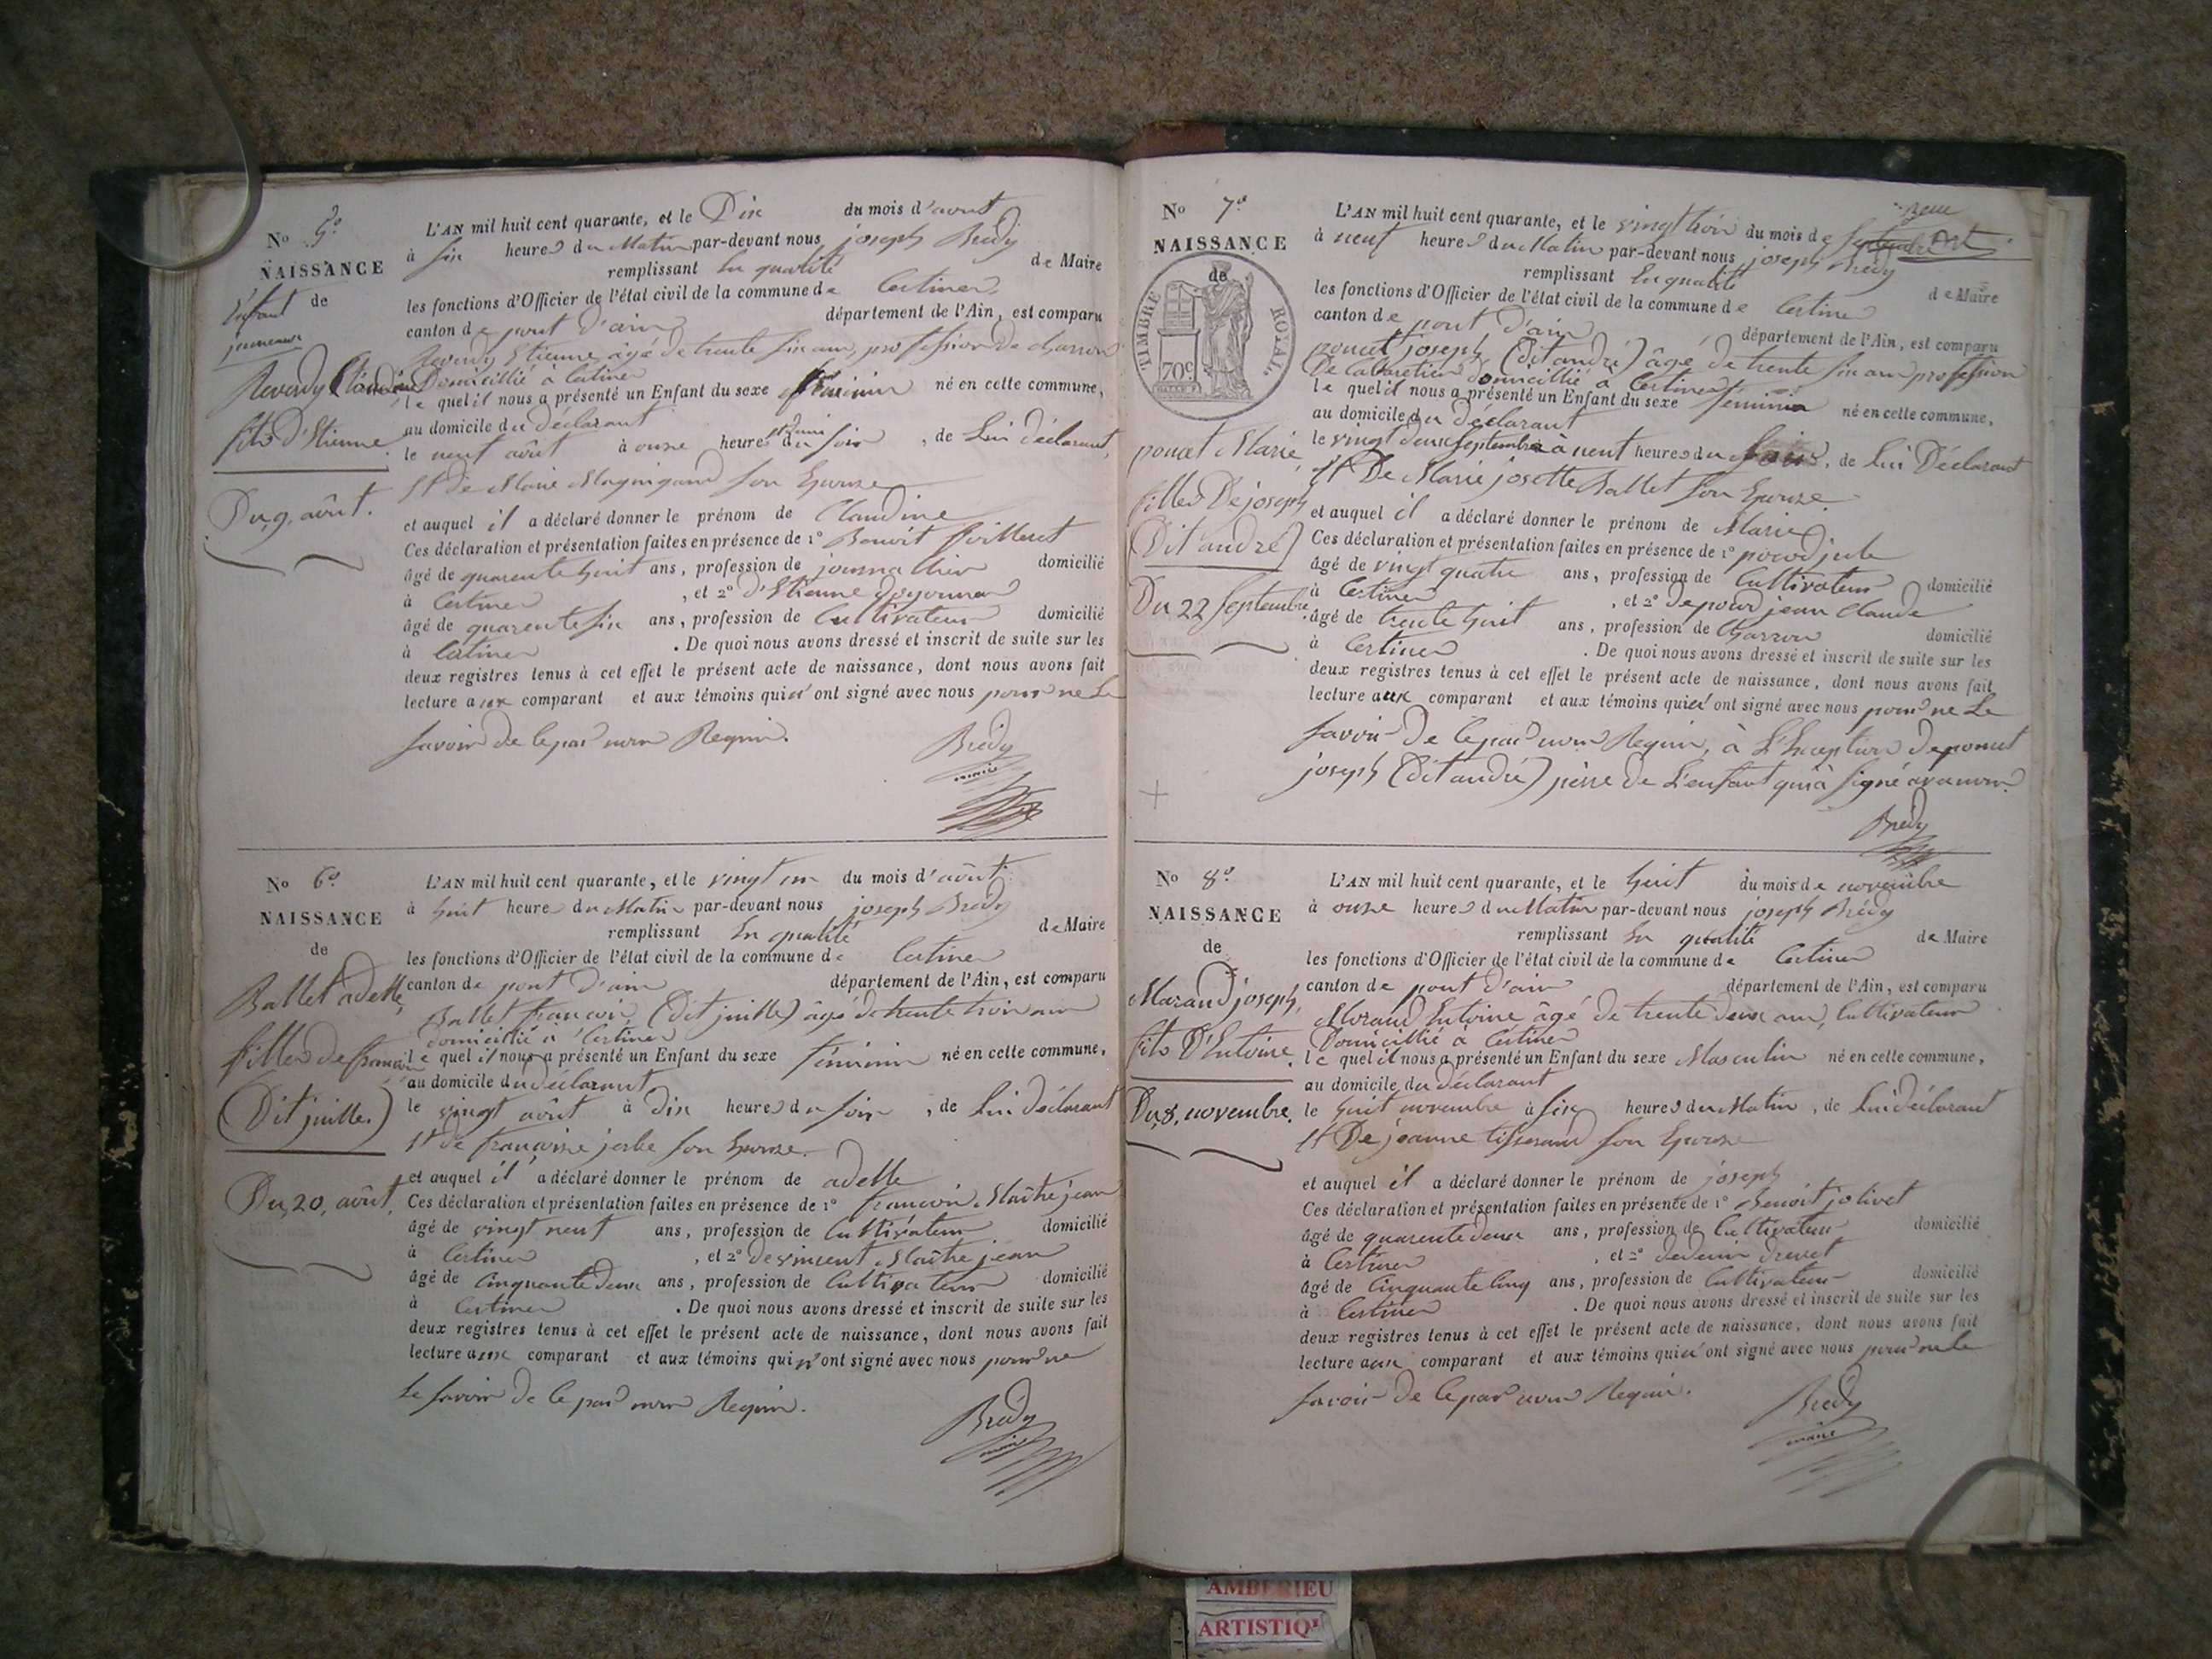 No 5º
NAISSANCE
Enfant de
jumeaux
Reverdy Claudine
fils d'Etienne.
Du, 9, août.
L'AN mil huit cent quarante, et le Dix du mois d'aout
à six heures du Matin par-devant nous joseph Brédy
remplissant En qualité de Maire
les fonctions d'Officier de l'état civil de la commune de Certines
canton de pont d'ain département de l'Ain, est comparu
Reverdy Etienne, âgé de trente six ans, profession de charron
Domicillié à Certines
le quel il nous a présenté un Enfant du sexe féminin né en cette commune,
au domicile du déclarant
le neuf août à onze heures du soir, de Lui déclarant,
Et de Marie son Epouse
et auquel il a déclaré donner le prénom de Claudine
Ces déclaration et présentation faites en présence de 1º Benoit
âgé de quarente huit ans, profession de journallier domicilié
à Certines, et 2º d'Etienne
âgé de quarente six ans, profession de Cultivateur domicilié
à Certines. De quoi nous avons dressé et inscrit de suite sur les
deux registres tenus à cet effet le présent acte de naissance, dont nous avons fait
lecture aux comparant et aux témoins qui n'ont signé avec nous pour ne Le
savoir de ce par nous Requis.
Brédy
maire
No 6º
NAISSANCE
de
Ballet adelle,
filles de francois
(Dit juille.)
Du, 20, août,
L'AN mil huit cent quarante, et le vingt un du mois d'août
à huit heures du Matin par-devant nous joseph Brédy
remplissant En qualité de Maire
les fonctions d'Officier de l'état civil de la commune de Certines
canton de pont d'ain département de l'Ain, est comparu
Ballet francois, (dit juille) âgé de trente trois ans
domicillié à Certines
le quel il nous a présenté un Enfant du sexe féminin né en cette commune,
au domicile du déclarant
le vingt août à dix heures du soir, de Lui déclarant
Et de françoise son Epouse.
et auquel il a déclaré donner le prénom de adelle
Ces déclaration et présentation faites en présence de 1º francois Maître jean
âgé de vingt neuf ans, profession de Cultivateur domicilié
à Certines, et 2º de vincent Maître jean
âgé de Cinquante Deux ans, profession de Cultivateur domicilié
à Certines. De quoi nous avons dressé et inscrit de suite sur les
deux registres tenus à cet effet le présent acte de naissance, dont nous avons fait
lecture aux comparant et aux témoins qui n'ont signé avec nous pour ne
Le savoir de ce par nous Requis.
Brédy
maire
No 7º
NAISSANCE
de
TIMBRE ROYAL
70c
poncet Marie,
filles De joseph
(Dit andré)
Du 22 Septembre.
L'AN mil huit cent quarante, et le vingt trois du mois de Septembre
à neuf heures du Matin par-devant nous joseph Brédy
remplissant En qualité de Maire
les fonctions d'Officier de l'état civil de la commune de Certines
canton de pont d'ain département de l'Ain, est comparu
poncet joseph (dit andré) âgé de trente six ans profession
De Cabaretier domicillié à Certines
le quel il nous a présenté un Enfant du sexe féminin né en cette commune,
au domicile du déclarant
le vingt deux Septembre à neuf heures du soir, de Lui Déclarant
Et De Marie josette Ballet son Epouse.
et auquel il a déclaré donner le prénom de Marie
Ces déclaration et présentation faites en présence de 1º
âgé de vingt quatre ans, profession de Cultivateur domicilié
à Certines, et 2º jean Claude
âgé de trente huit ans, profession de Charron domicilié
à Certines. De quoi nous avons dressé et inscrit de suite sur les
deux registres tenus à cet effet le présent acte de naissance, dont nous avons fait
lecture aux comparant et aux témoins qui n'ont signé avec nous pour ne Le
savoir De ce par nous Requis, à L'Exception De poncet
joseph (dit andré) père De L'enfant qui a signé avec nous.
Brédy
No 8º
NAISSANCE
de
Morand joseph,
fils D'Entoine.
Du, 8, novembre.
L'AN mil huit cent quarante, et le huit du mois de novembre
à onze heures du Matin par-devant nous joseph Brédy
remplissant En qualité de Maire
les fonctions d'Officier de l'état civil de la commune de Certines
canton de pont d'ain département de l'Ain, est comparu
Morand Entoine âgé de trente deux ans, Cultivateur
Domicillié à Certines
le quel il nous a présenté un Enfant du sexe Masculin né en cette commune,
au domicile du déclarant
le huit novembre à six heures du Matin, de Lui déclarant
Et De jeanne tisserand son Epouse
et auquel il a déclaré donner le prénom de joseph
Ces déclaration et présentation faites en présence de 1º Benoit jolivet
âgé de quarente deux ans, profession de Cultivateur domicilié
à Certines, et 2º drevet
âgé de Cinquante Cinq ans, profession de Cultivateur domicilié
à Certines. De quoi nous avons dressé et inscrit de suite sur les
deux registres tenus à cet effet le présent acte de naissance, dont nous avons fait
lecture aux comparant et aux témoins qui n'ont signé avec nous pour ne le
savoir De ce par nous Requis.
Brédy
maire
AMBERIEU
ARTISTIQ